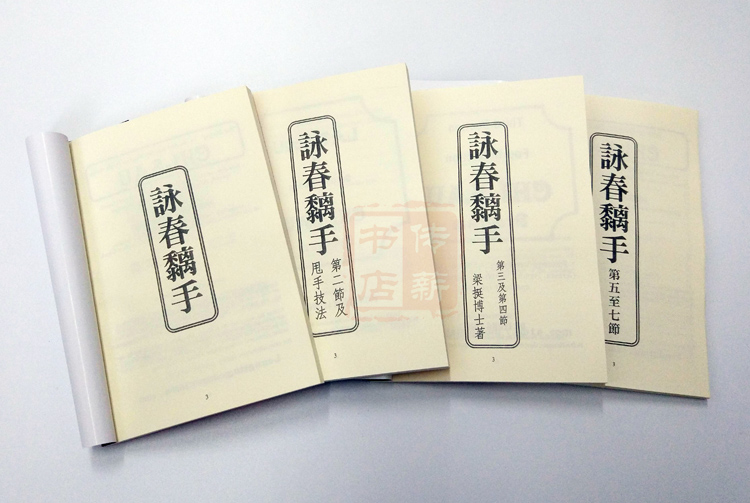 詠春黐手
3
詠春黐手
第二節及
甩手技法
3
詠春黐手
第三及第四節
梁挺博士著
3
詠春黐手
第五至七節
3
传薪
书店